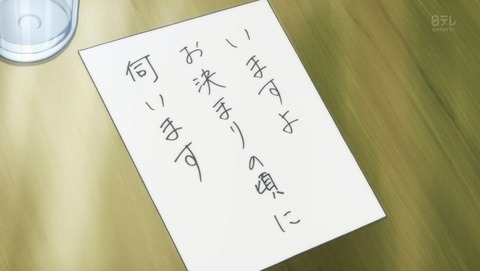 いますよ
お決まりの頃に
伺います
日テレ